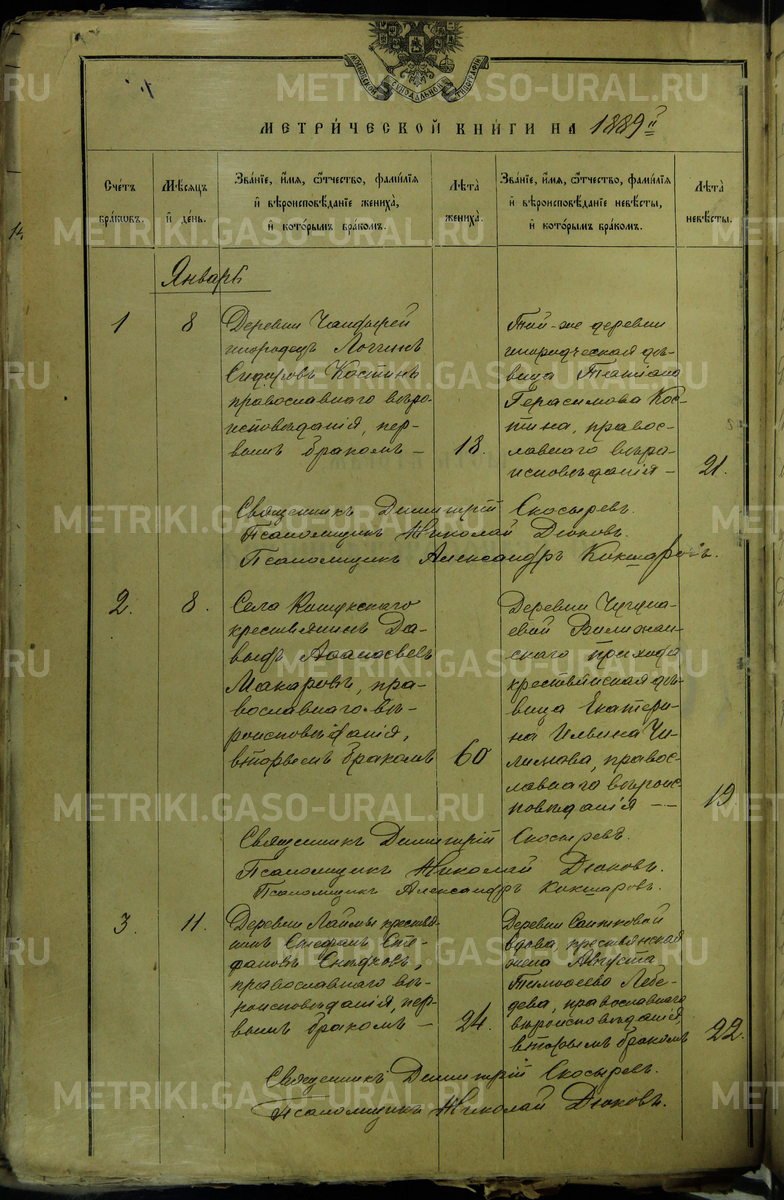 МЕТРИ́ЧЕСКОЙ КНИ́ГИ НА 1889 г
Сче́тъ бра́ковъ.
Мѣ́сяцъ и҆ де́нь.
Зва́нїе, и҆́мя, ѻ҆́тчество, фами́лїя и҆ вѣроисповѣ́данїе жениха́, и҆ кото́рымъ бра́комъ.
Лѣ́та жениха́.
Зва́нїе, и҆́мя, ѻ҆́тчество, фами́лїя и҆ вѣроисповѣ́данїе невѣ́сты, и҆ кото́рымъ бра́комъ.
Лѣ́та невѣ́сты.
Январь
1
8
Деревни
инородецъ Логгинъ
Сидоровъ Костинъ
православнаго вѣро-
исповѣданія, пер-
вымъ бракомъ —
18.
Той-же деревни
инородческая дѣ-
вица Татіана
Герасимова Кос-
тина, правос-
лавнаго вѣро-
исповѣданія —
21.
Священникъ Димитрій Скосыревъ.
Псаломщикъ Николай Дюковъ.
Псаломщикъ Александръ Кокшаровъ.
2.
8.
Села
крестьянинъ Да-
выдъ Аѳанасьевъ
Макаровъ, пра-
вославнаго вѣ-
роисповѣданія,
вторымъ бракомъ
60
Деревни
прихода
крестьянская дѣ-
вица Екатери-
на Ильина Чи-
лимова, правос-
лавнаго вѣроис-
повѣданія —
19
Священникъ Димитрій Скосыревъ.
Псаломщикъ Николай Дюковъ.
Псаломщикъ Александръ Кокшаровъ.
3.
11.
Деревни Лаймы крестья-
нинъ Стефанъ Сте-
фановъ
православнаго вѣ-
роисповѣданія, пер-
вымъ бракомъ —
24.
Деревни
вдова, крестьянская
жена Августа
Тимоѳеева Лебе-
дева, православнаго
вѣроисповѣданія,
вторымъ бракомъ
22.
Священникъ Димитрій Скосыревъ.
Псаломщикъ Николай Дюковъ.
METRIKI.GASO-URAL.RU